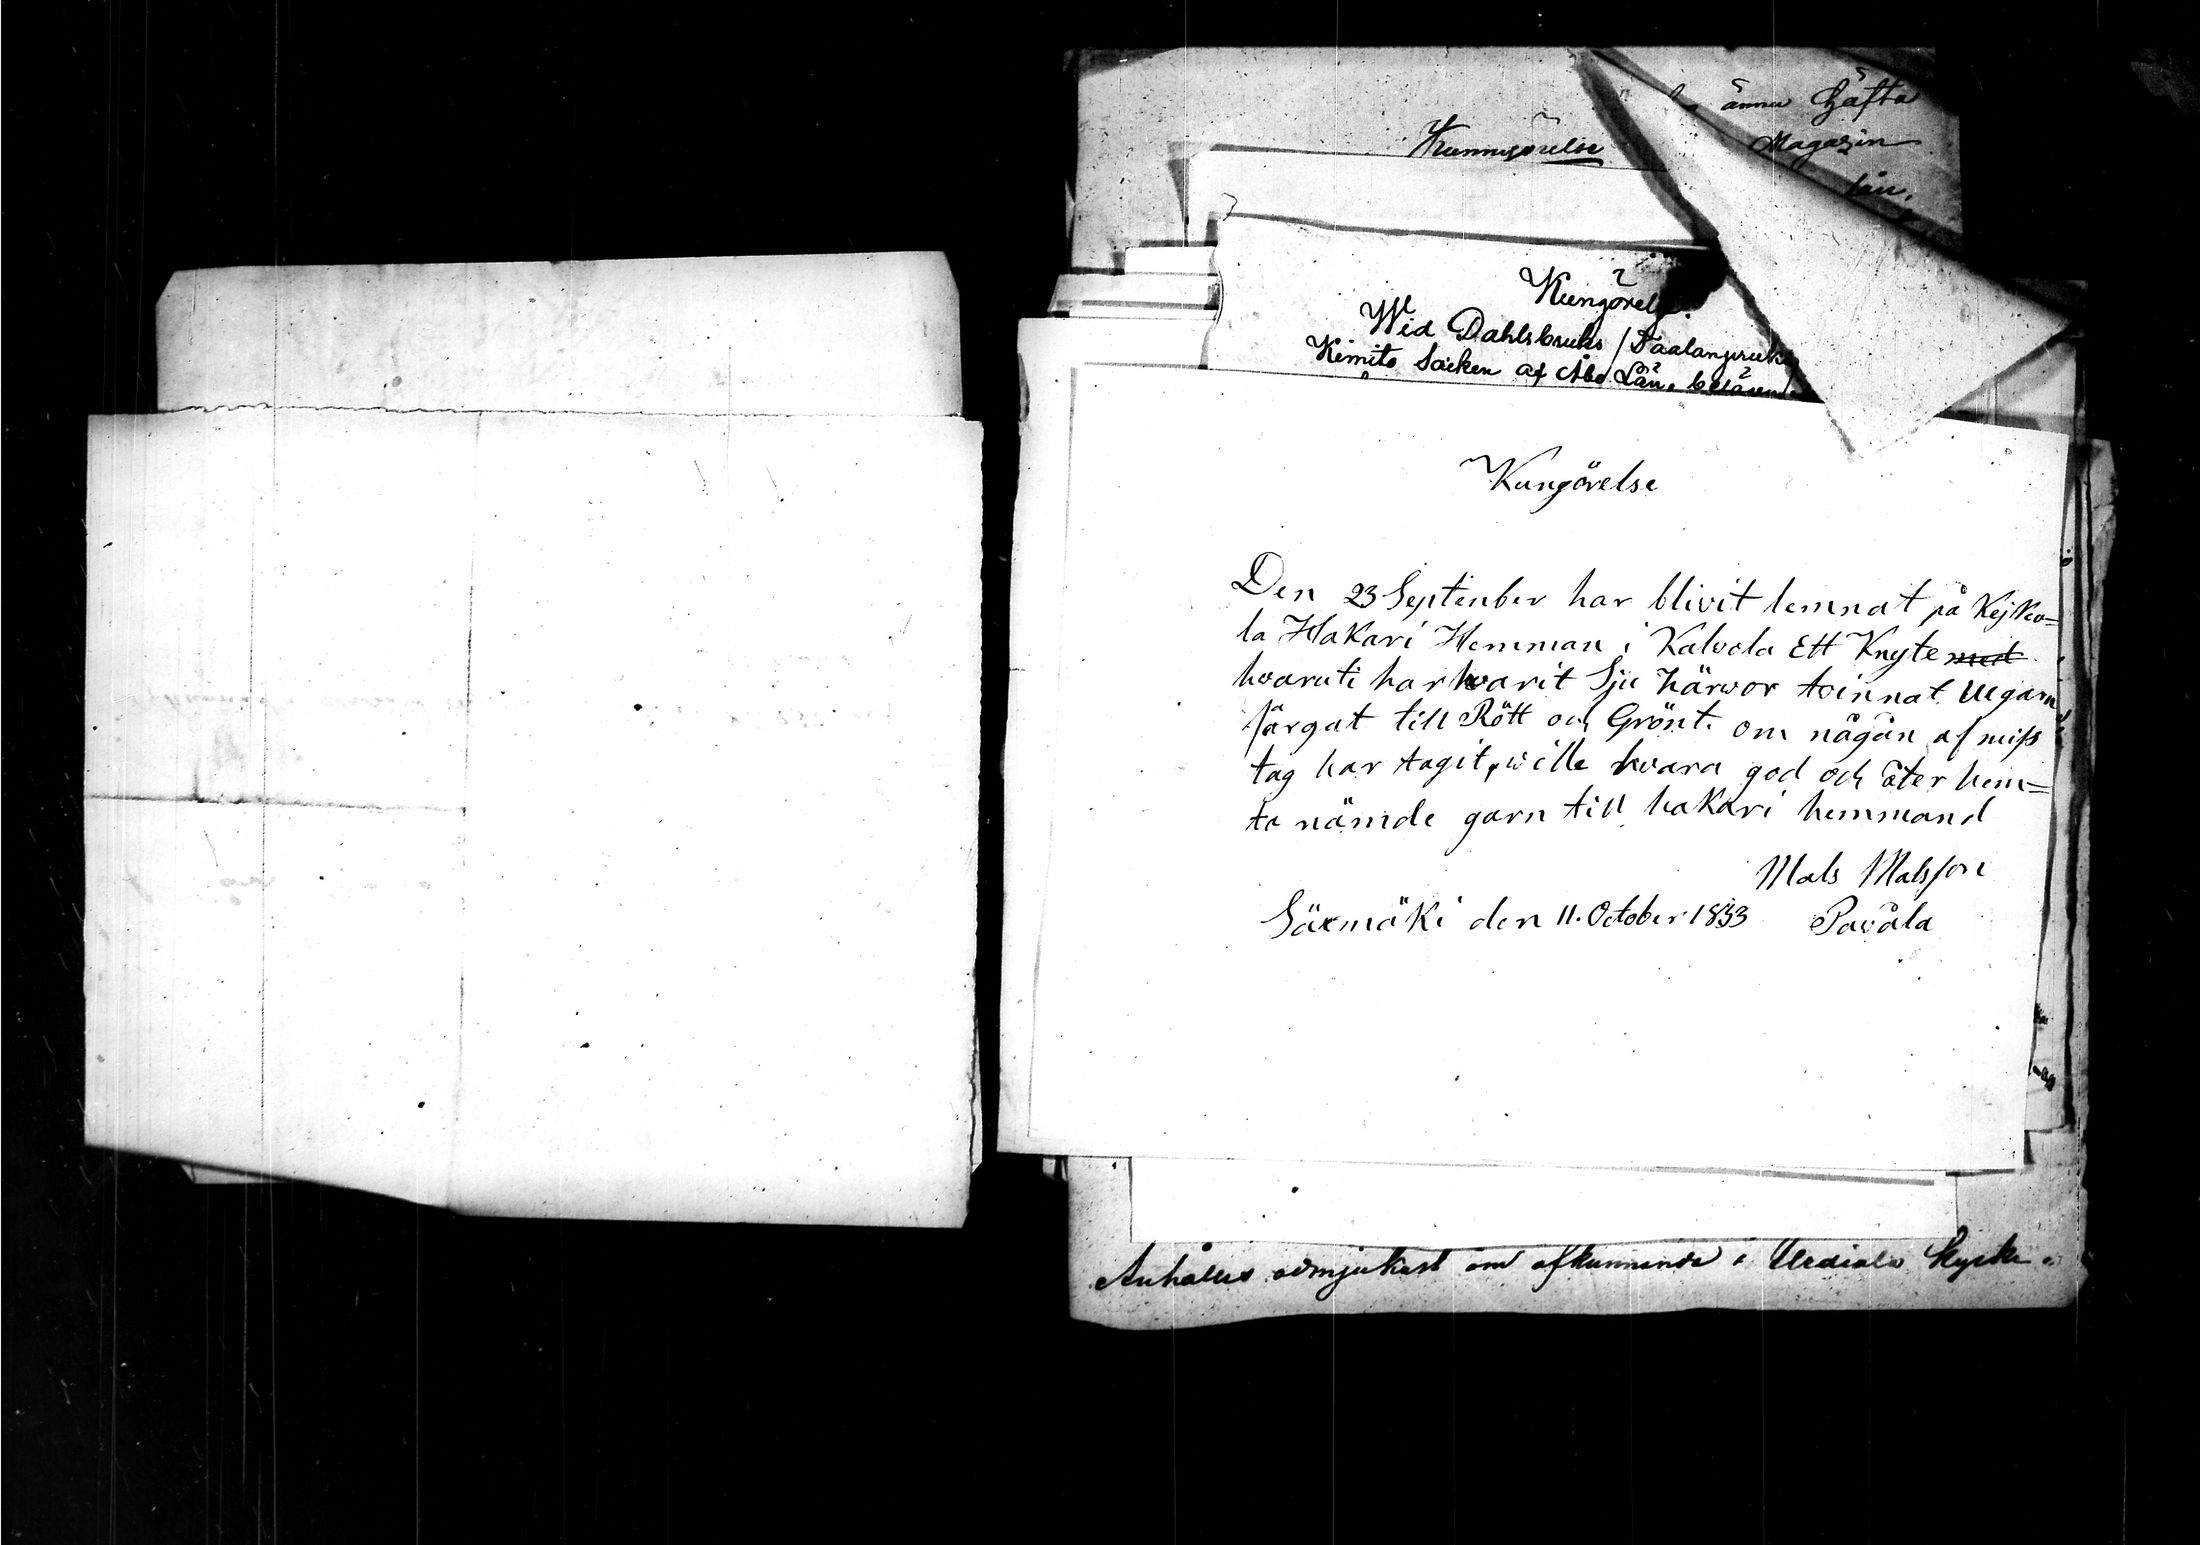 ännu häfta
Kunnugörelse
Magazin
lån.
Kungörelse.
Wid Dahlsbruks / Taalanpruuki
Kimito Socken af Åbo Län, belägen
Kungörelse
Den 23 September har blivit lemnat på Kejkko=
la Hakari Hemman i Kalvola Ett Knyte med
hvaruti har hvarit Sju härwor tvinnat Ulgarn
färgat till Rött och Grönt. om någån af miss
tag har tagit, wille hvara god och åter hem=
ta nämde garn till hakari hemmand
Mats Matsson
Säxmäki den 11. October 1833 Pavåla
Anhålles ödmjukast om afkunnande i Urdiala Kyrka